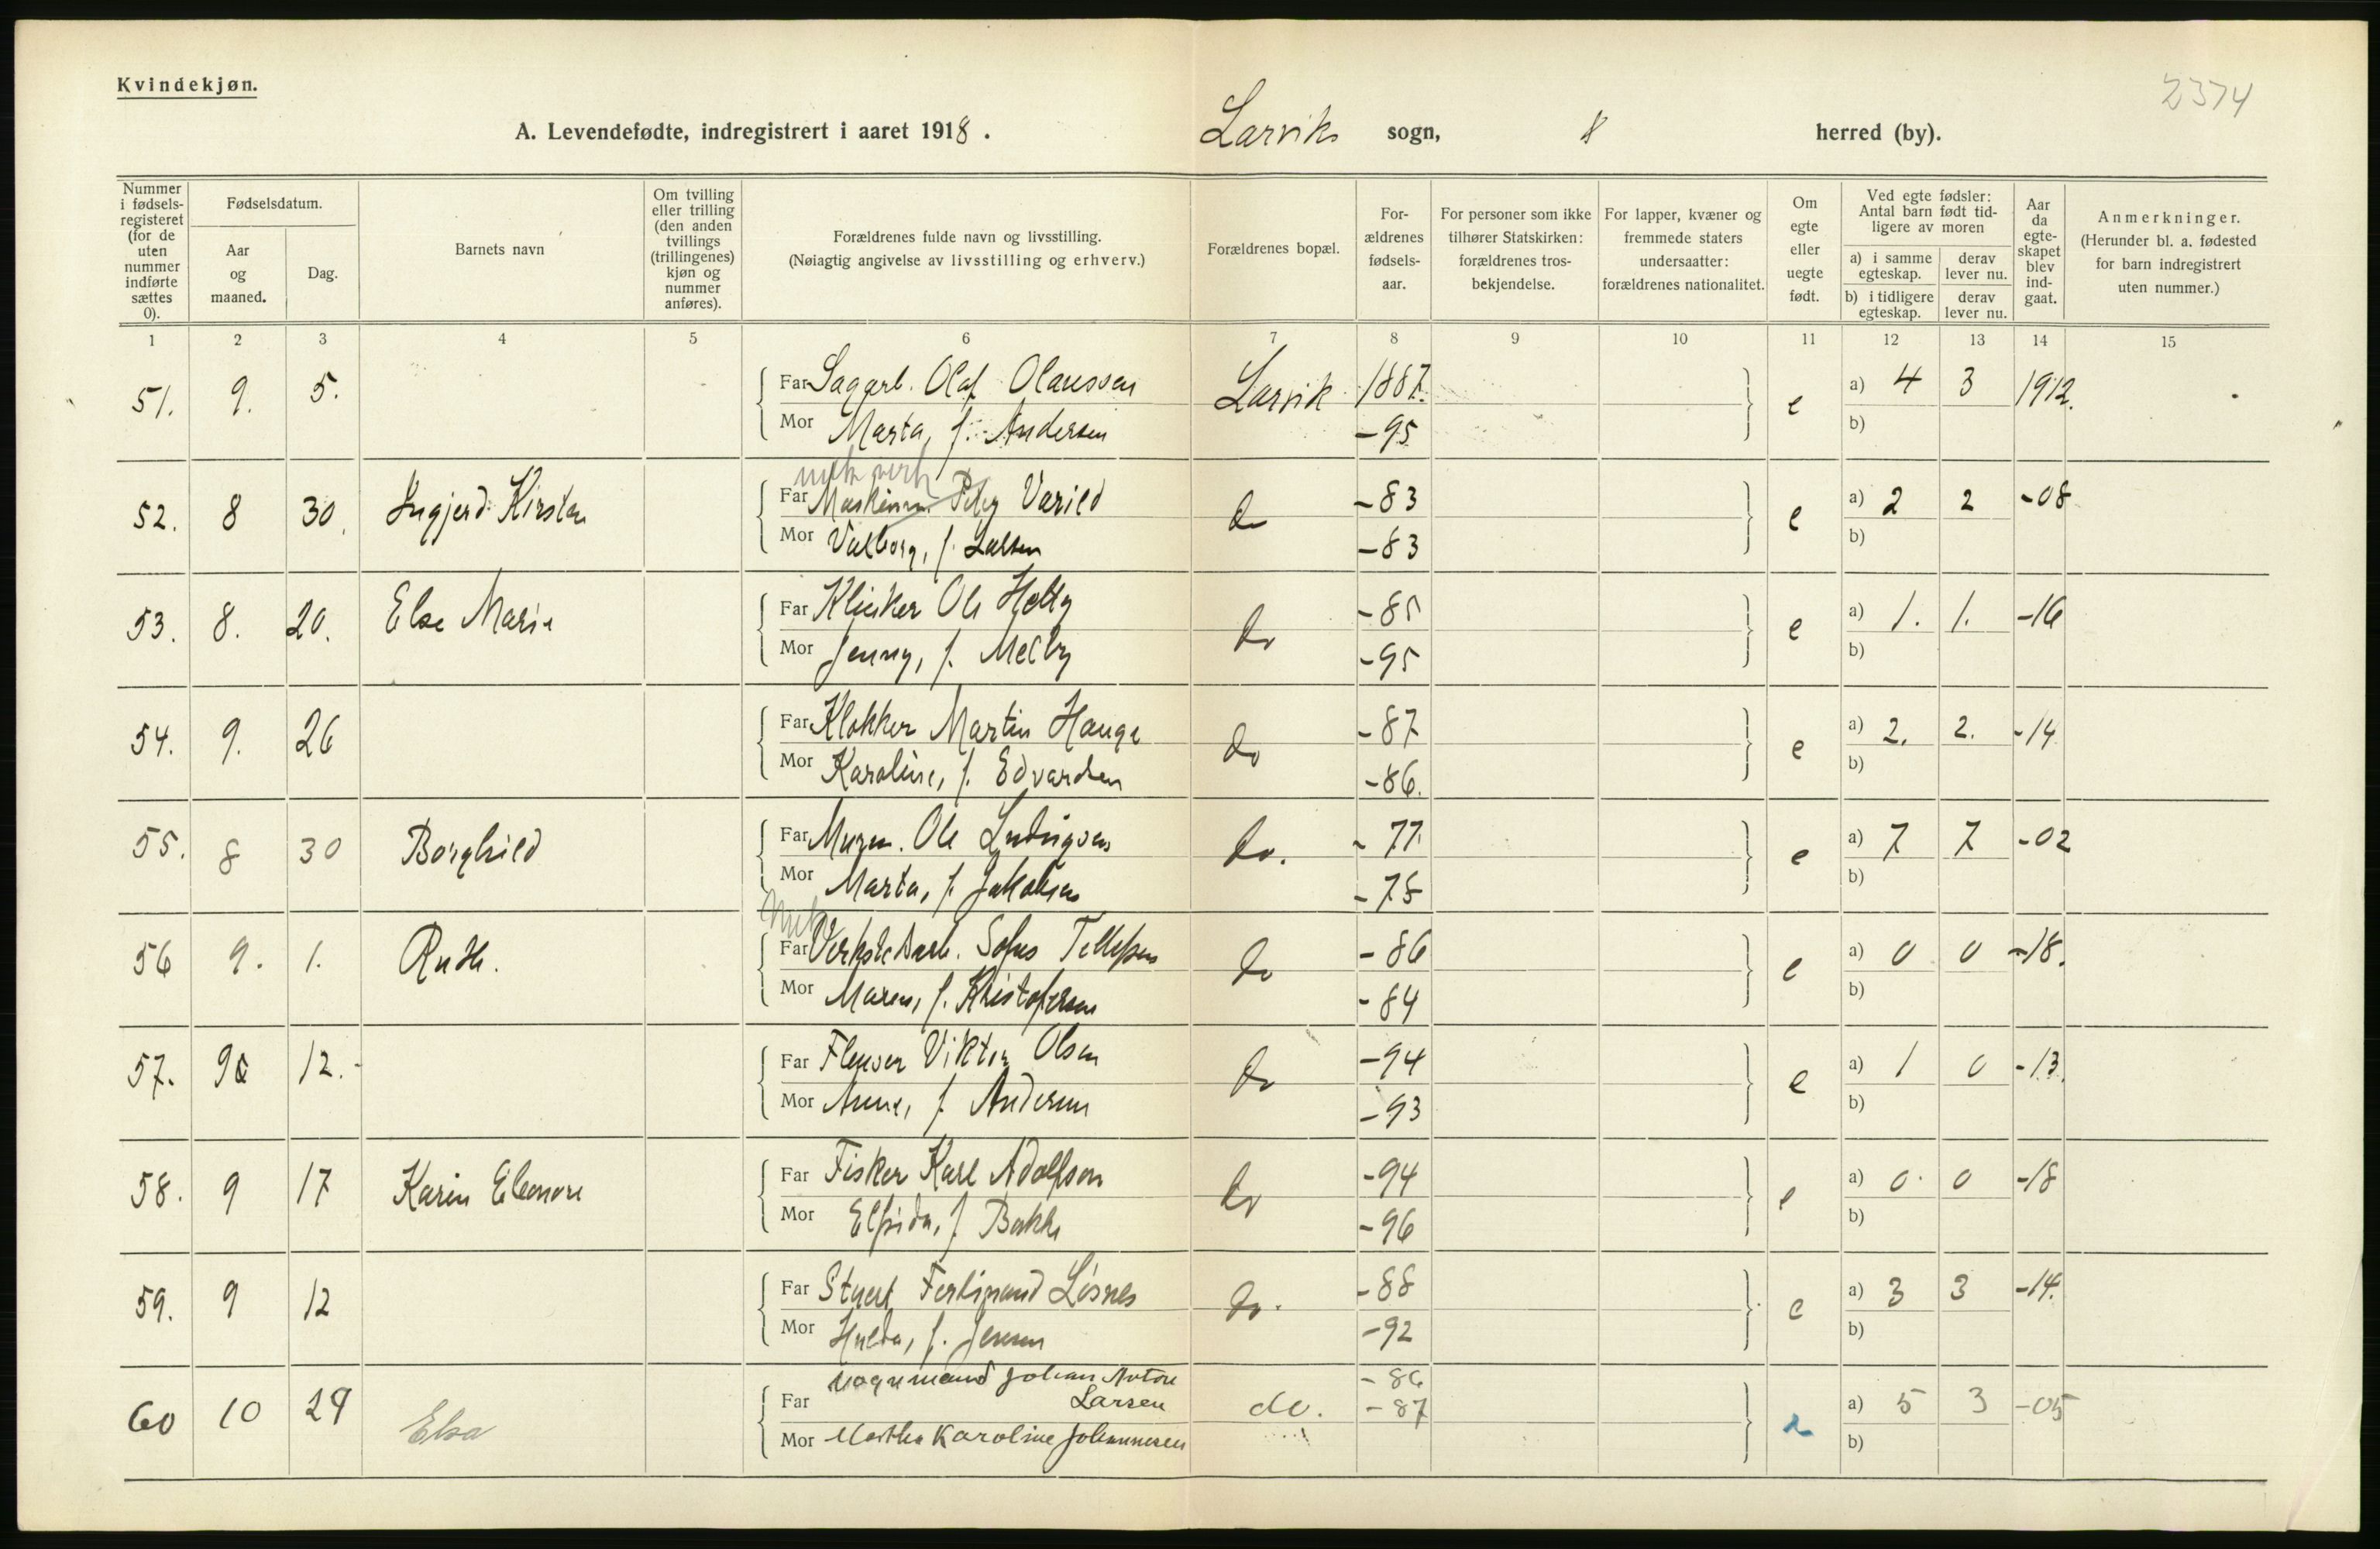 Kvindekjøn.
2374
A. Levendefødte, indregistrert i aaret 1918. Larviks sogn, herred (by).
Nummer i fødselsregisteret (for de uten nummer indførte sættes 0).
Fødselsdatum.
Aar og maaned.
Dag.
Barnets navn
Om tvilling eller trilling (den anden tvillings (trillingenes) kjøn og nummer anføres).
Forældrenes fulde navn og livsstilling.
(Nøiagtig angivelse av livsstilling og erhverv.)
Forældrenes bopæl.
Forældrenes fødselsaar.
For personer som ikke tilhører Statskirken: forældrenes trosbekjendelse.
For lapper, kvæner og fremmede staters undersaatter: forældrenes nationalitet.
Om egte eller uegte født.
Ved egte fødsler: Antal barn født tidligere av moren
a) i samme egteskap. derav lever nu.
b) i tidligere egteskap. derav lever nu.
Aar da egteskapet blev indgaat.
Anmerkninger.
(Herunder bl. a. fødested for barn indregistrert uten nummer.)
1 2 3 4 5 6 7 8 9 10 11 12 13 14 15
51. 9. 5. Far Sagarb. Olaf Olaussen Larvik 1887. e a) 4 3 1912.
Mor Marta, f. Andersen -95 b)
mek verk
52. 8 30. Ingjerd Kirsten Far Varild do -83 e a) 2 2 -08
Mor Valborg, f. -83 b)
53. 8. 20. Else Marie Far Ole do -85 e a) 1. 1. -16
Mor Jenny, f. Melby -95 b)
54. 9. 26 Far Klokker Martin Hauge do -87 e a) 2. 2. -14
Mor Karoline, f. Edvardsen -86. b)
55. 8 30 Borghild Far Murm. Ole Ludvigsen do. -77. e a) 7 7 -02
Mor Marta, f. Jakobsen -78 b)
Mek
56 9. 1. Ruth. Far Verkstedarb. Sofus Tellefsen do -86 e a) 0 0 -18.
Mor Maren, f. Kristofersen -84 b)
57. 9 12.- Far Flenser Viktor Olsen do -94 e a) 1 0 -13.
Mor Anne, f. Andersen -93 b)
58. 9 17 Karin Eleonore Far Fisker Karl Adolfson do -94 e a) 0. 0 -18
Mor Elfrida, f. Bakke -96 b)
59. 9 12 Far Stuert Ferdinand Løsnes do. -88 e a) 3 3 -14.
Mor Hulda, f. Jensen -92 b)
Vognmand Johan Anton -86
60 10 29 Elsa Far Larsen do. -87 e a) 5 3 -05
Mor Martha Karoline Johannesen b)